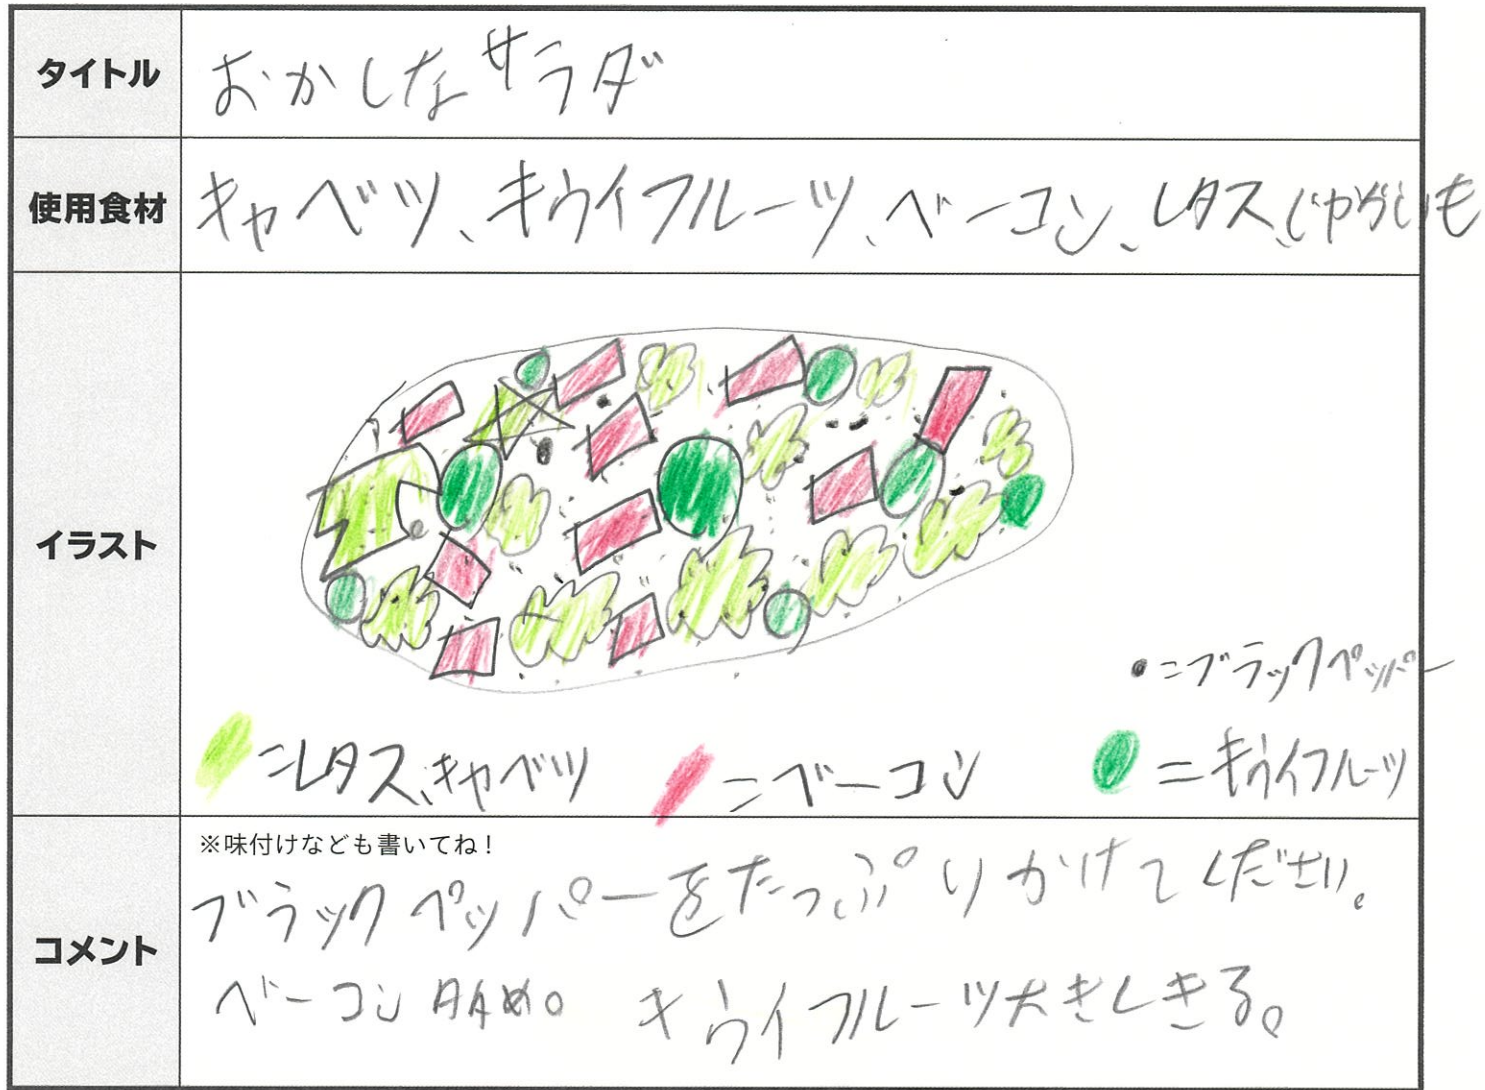 タイトル
おかしなサラダ
使用食材
キャベツ、キウイフルーツ、ベーコン、レタス、じゃがいも
イラスト
=ブラックペッパー
=レタス、キャベツ
=ベーコン
=キウイフルーツ
コメント
※味付けなども書いてね!
ブラックペッパーをたっぷりかけてください。
ベーコン多め。キウイフルーツ大きくきる。